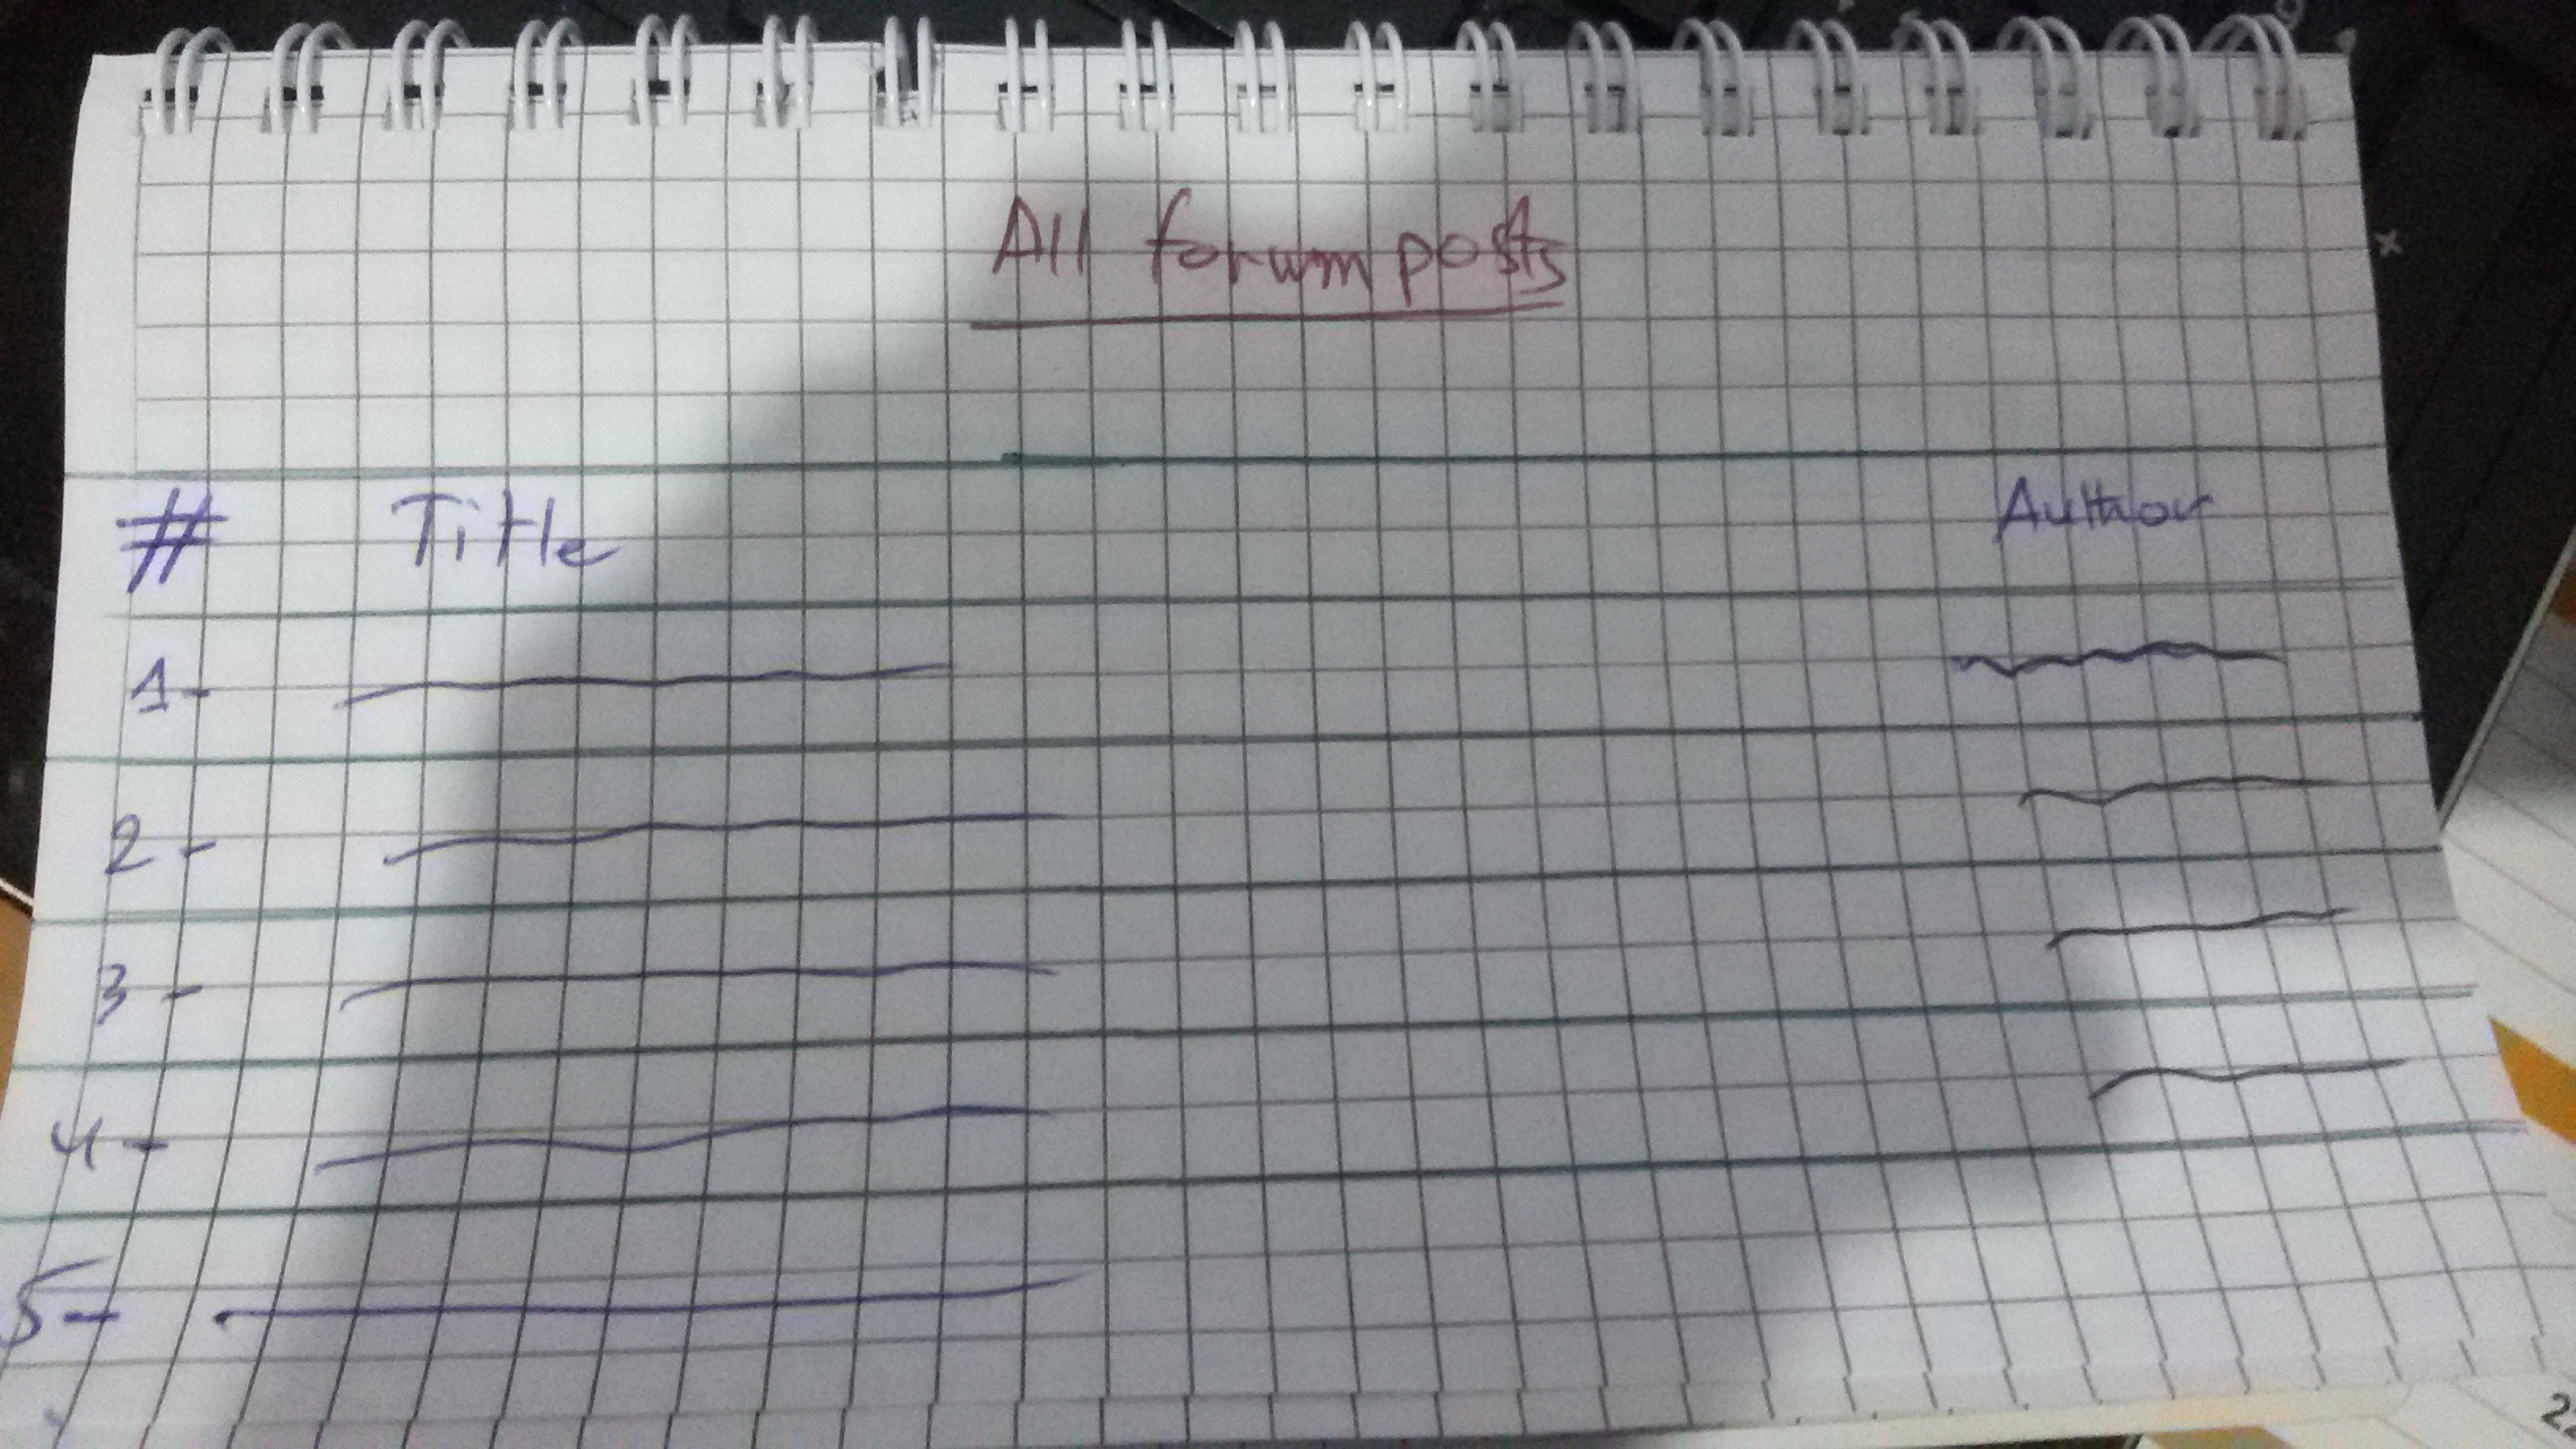 All forum posts
# Title Author
1-
2-
3-
4-
5-